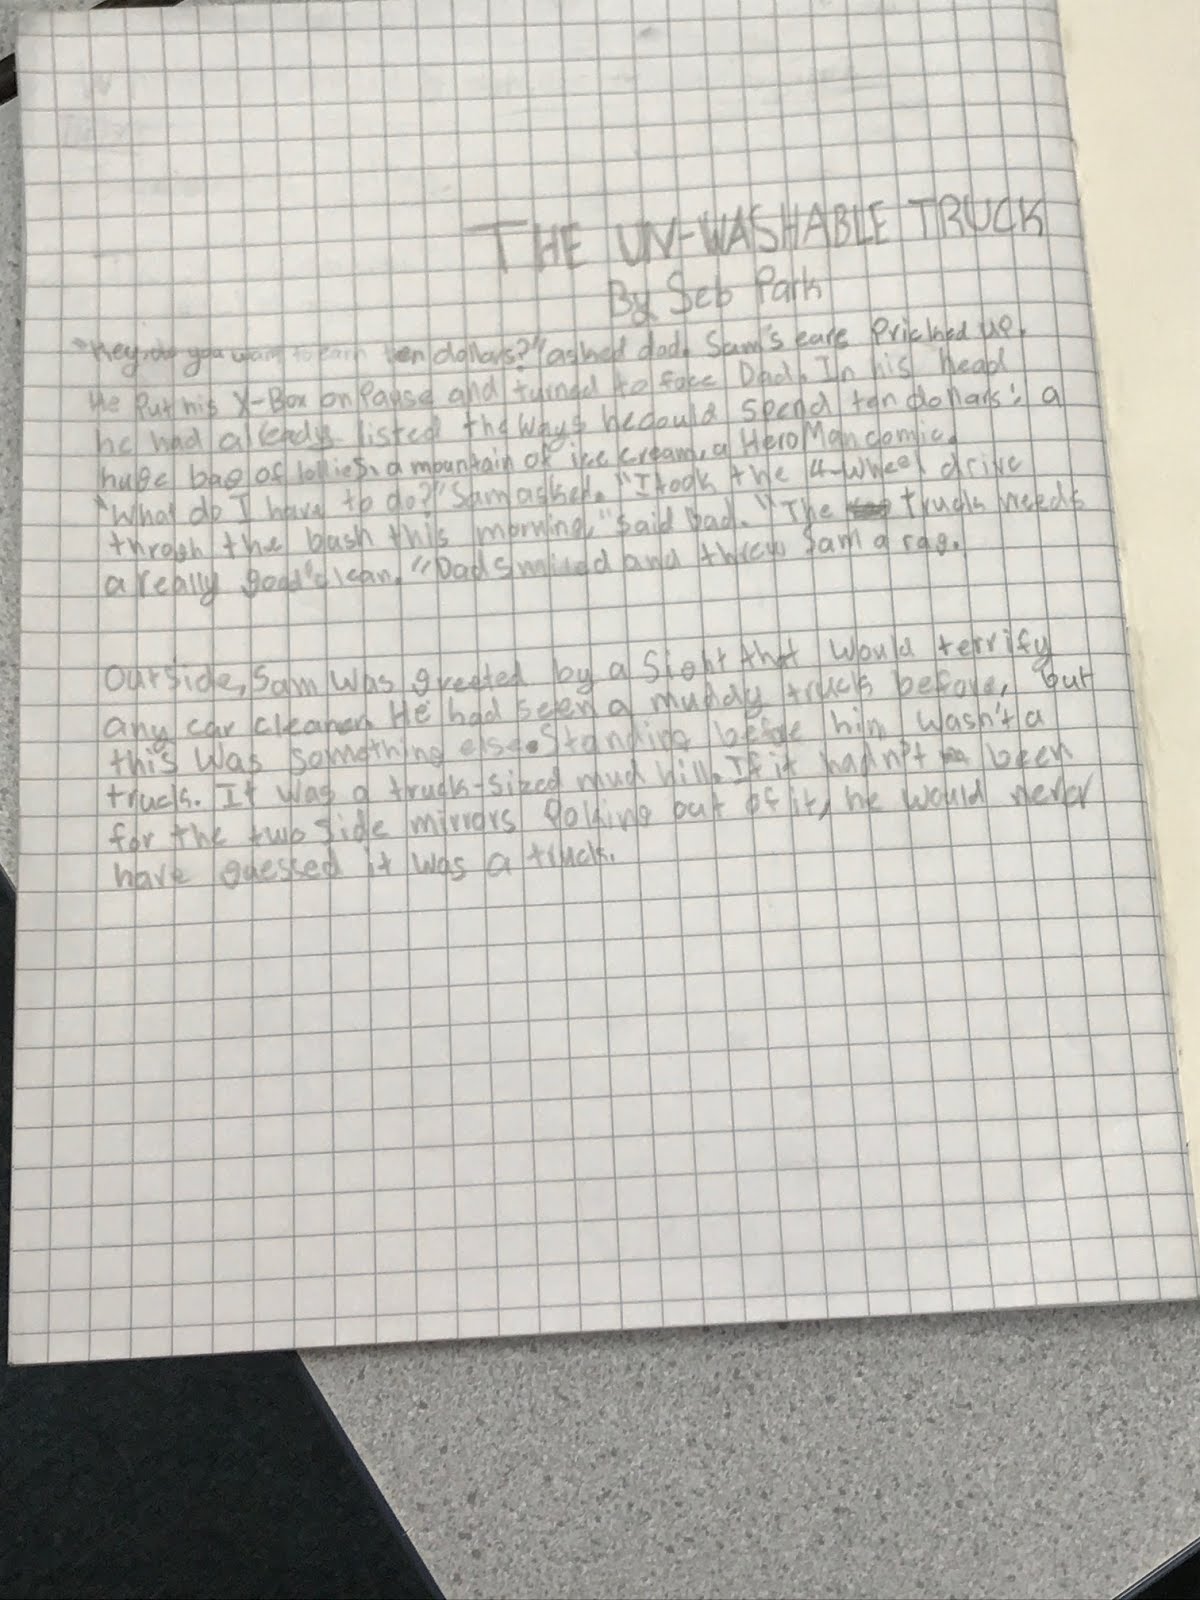 THE UN-WASHABLE TRUCK
By Seb Park
"Hey, do you want to earn ten dollars?" asked dad. Sam's ears Pricked up.
He Put his X-Box on Pause and turned to face Dad. In his head
he had already listed the Ways he could spend ten dollars: a
huge bag of lollies, a mountain of ice cream, a Hero Man comic.
"What do I have to do?" Sam asked. "I took the 4-wheel drive
throgh the bash this morning," said Dad. "The truck needs
a really good clean." Dad smiled and threw Sam a rag.
Outside, Sam Was greeted by a Sight that Would terrify
any car cleaner. He had seen a muddy truck before, but
this Was something else. Standing before him Wasn't a
truck. It Was a truck-sized mud hill. If it hadn't been
for the two side mirrors Poking out of it, he Would never
have guessed it Was a truck.